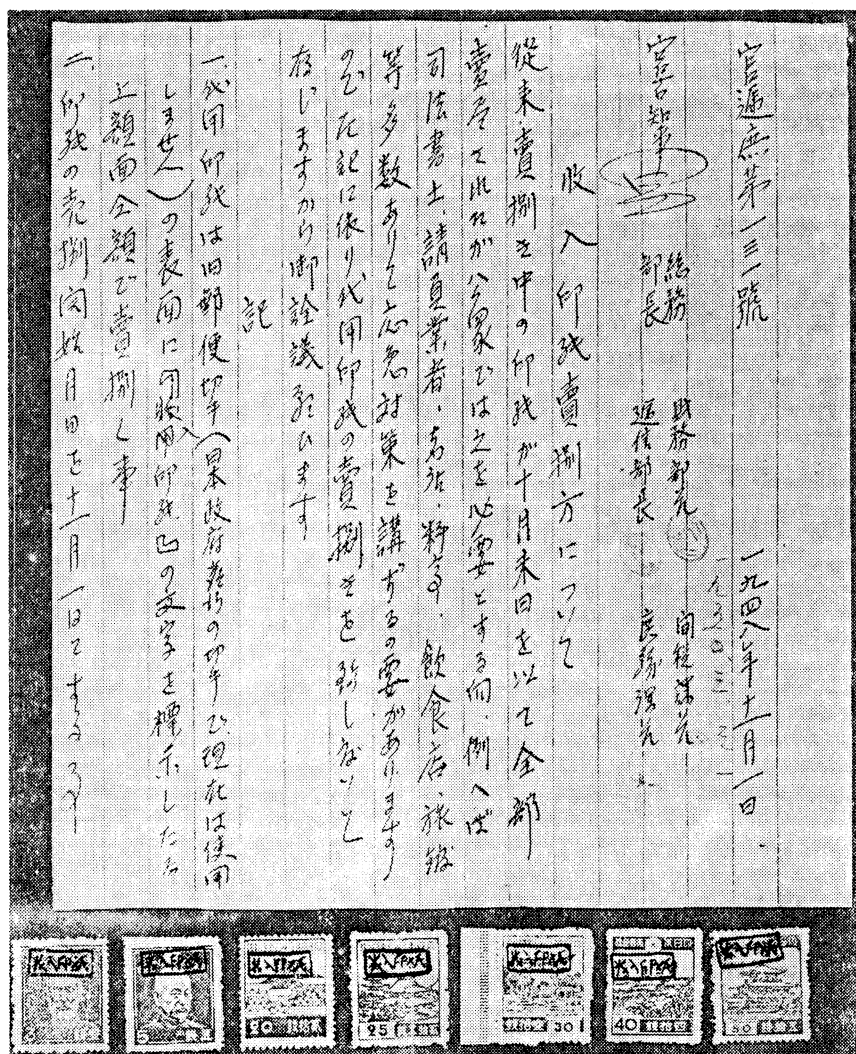 官逓庶第一三一號
一九四八年十一月一日
宮古知事
総務部長
財務部長
逓信部長
收入印紙賣捌方について
從来賣捌き中の印紙が十月末日を以て全部
賣尽されたが公衆では之を必要とする向、例へば
司法書士、請負業者、料亭、飲食店、旅館
等多数ありて応急対策を講ずるの要があります
ので左記に依り代用印紙の賣捌きを致しないと
存じますから御詮議願ひます
記
一、代用印紙は旧郵便切手(日本政府発行の切手で現在は使用
しません)の表面に「收入印紙」の文字を標示したる
上額面全額で賣捌く事
二、印紙の売捌開始月日を十一月一日とする事
收入印紙
收入印紙
5
收入印紙
20
收入印紙
25
收入印紙
30
收入印紙
40
收入印紙
50